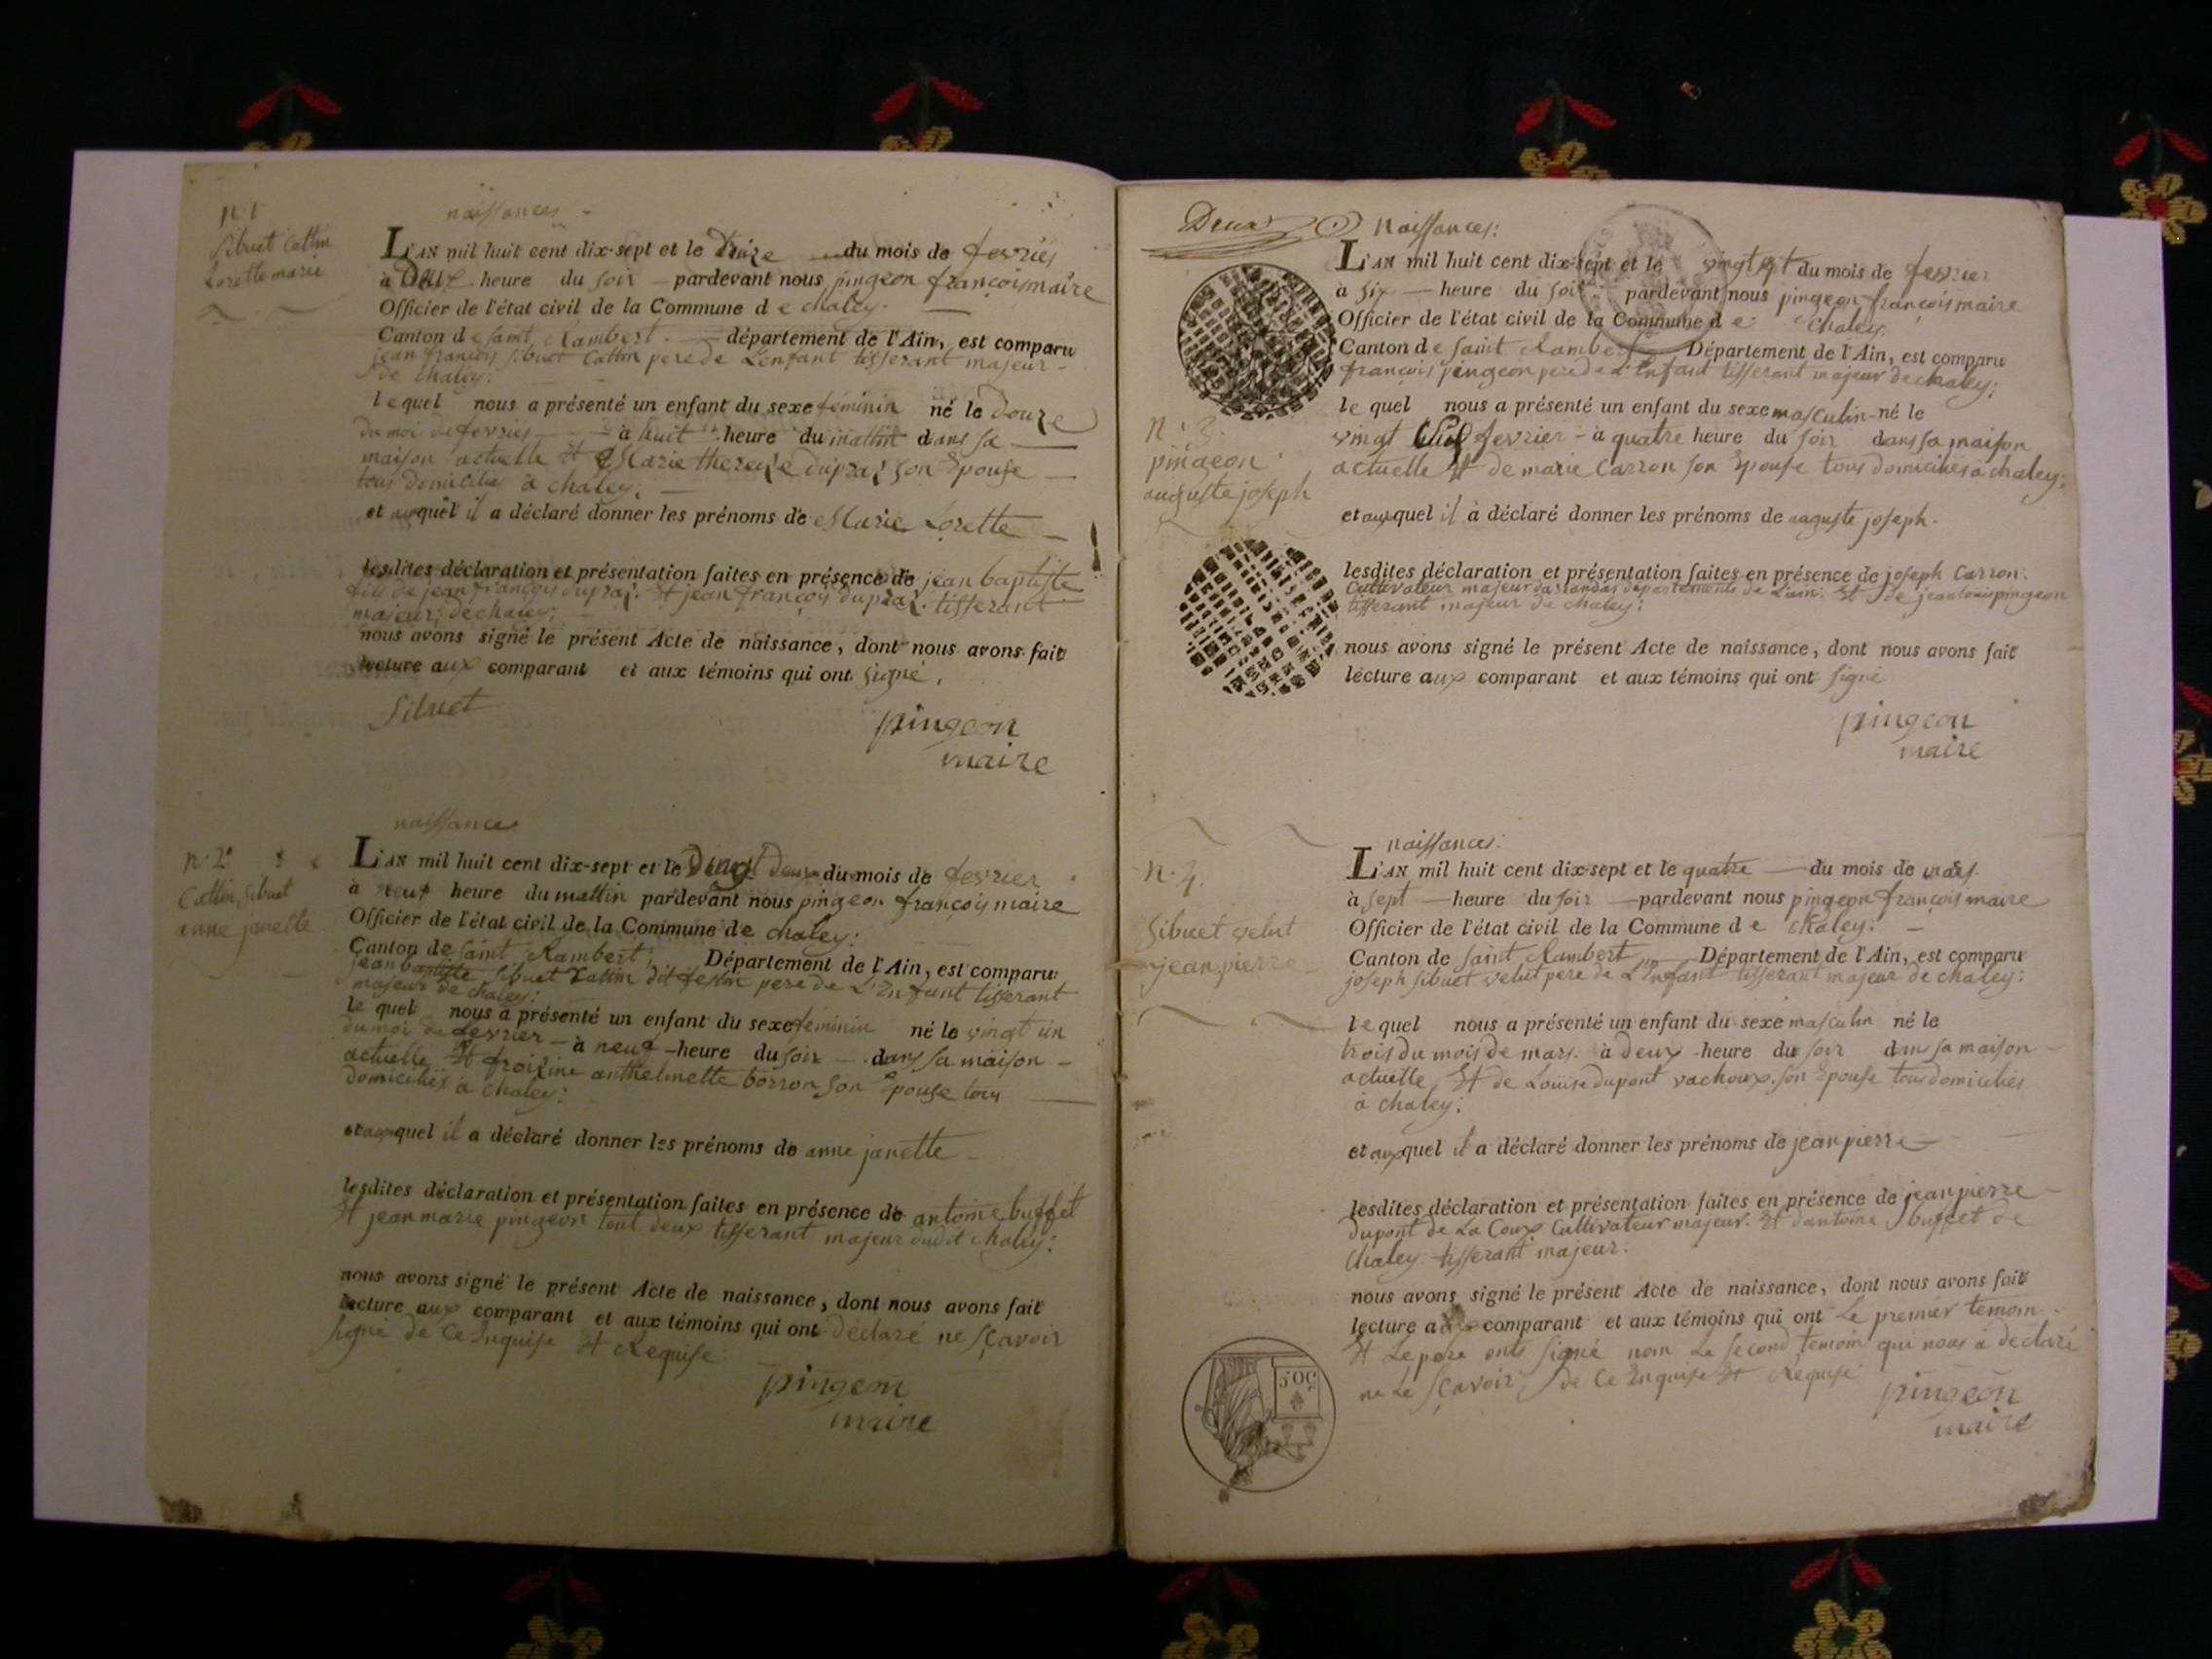 n. 1
Sibuet Cattin
Lorette marie
naissances
L'AN mil huit cent dix-sept et le treize du mois de fevrier
à Deux heure du soir pardevant nous pingeon françois maire
Officier de l'état civil de la Commune de chaley.
Canton de saint Rambert département de l'Ain, est comparu
jean françois sibuet Cattin pere de L'enfant tisserant majeur
de chaley;
lequel nous a présenté un enfant du sexe féminin né le douze
du moi de fevrier à huit heure du mattin dans sa
maison actuelle Et Marie therese dupraz son Epouse
tous domiciliés à chaley;
et auquel il a déclaré donner les prénoms de Marie Lorette
lesdites déclaration et présentation faites en présence de jean baptiste
fils de jean françois dupraz. Et jean françois dupraz. tisserant
majeur; de chaley;
nous avons signé le présent Acte de naissance, dont nous avons fait
lecture aux comparant et aux témoins qui ont signé.
Sibuet
pingeon
maire
naissances
n. 2
Cattin Sibuet
anne janette
L'AN mil huit cent dix-sept et le Vingt Deux du mois de fevrier
à neuf heure du mattin pardevant nous pingeon françois maire
Officier de l'état civil de la Commune de chaley:
Canton de saint Rambert; Département de l'Ain, est comparu
jean baptiste sibuet Cattin dit pere de L'Enfant tisserant
majeur de chaley:
le quel nous a présenté un enfant du sexe feminin né le vingt un
du moi de fevrier à neuf heure du soir dans sa maison
actuelle Et froisine anthelmette borron son Epouse tous
domiciliés à chaley:
et auquel il a déclaré donner les prénoms de anne janette
lesdites déclaration et présentation faites en présence de antoine buffet
Et jean marie pingeon tout deux tisserant majeur dudit chaley:
nous avons signé le présent Acte de naissance, dont nous avons fait
lecture aux comparant et aux témoins qui ont déclaré ne sçavoir
signé de Ce Enquise Et Requise
pingeon
maire
Deux
Naissances:
L'AN mil huit cent dix-sept et le vingt du mois de fevrier
à six heure du soir pardevant nous pingeon françois maire
Officier de l'état civil de la Commune de chaley.
Canton de saint Rambert Département de l'Ain, est comparu
françois pingeon pere de L'Enfant tisserant majeur de chaley;
n. 3.
pingeon
auguste joseph
le quel nous a présenté un enfant du sexe masculin né le
vingt fevrier à quatre heure du soir dans sa maison
actuelle Et de marie Carron son Epouse tous domiciliés a chaley;
et auquel il à déclaré donner les prénoms de auguste joseph.
lesdites déclaration et présentation faites en présence de joseph Carron.
Cultivateur majeur departements de L'ain. Et de jean louis pingeon
tisserant majeur de chaley:
nous avons signé le présent Acte de naissance, dont nous avons fait
lecture aux comparant et aux témoins qui ont signé
pingeon
maire
naissances:
n. 4.
Sibuet velut
jean pierre
L'AN mil huit cent dix-sept et le quatre du mois de mars.
à sept heure du soir pardevant nous pingeon françois maire
Officier de l'état civil de la Commune de chaley:
Canton de saint Rambert Département de l'Ain, est comparu
joseph sibuet velut pere de L'Enfant tisserant majeur de chaley:
lequel nous a présenté un enfant du sexe masculin né le
trois du mois de mars. à deux heure du soir dans sa maison
actuelle, Et de Louise dupont vachoux son Epouse tous domiciliés
à chaley;
et auquel il a déclaré donner les prénoms de jean pierre
lesdites déclaration et présentation faites en présence de jean pierre
dupont de La Coux Cultivateur majeur. Et dantoine buffet de
Chaley tisserant majeur.
nous avons signé le présent Acte de naissance, dont nous avons fait
lecture aux comparant et aux témoins qui ont Le premier temoin
Et Le pere onts signé nom Le second temoin qui nous à déclaré
ne Le sçavoir de Ce Enquise Et Requise
pingeon
maire
50C